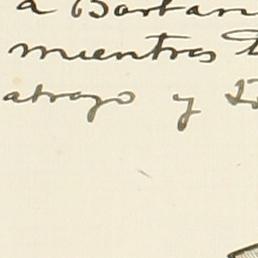 a Bartan
mientras
atrazo y